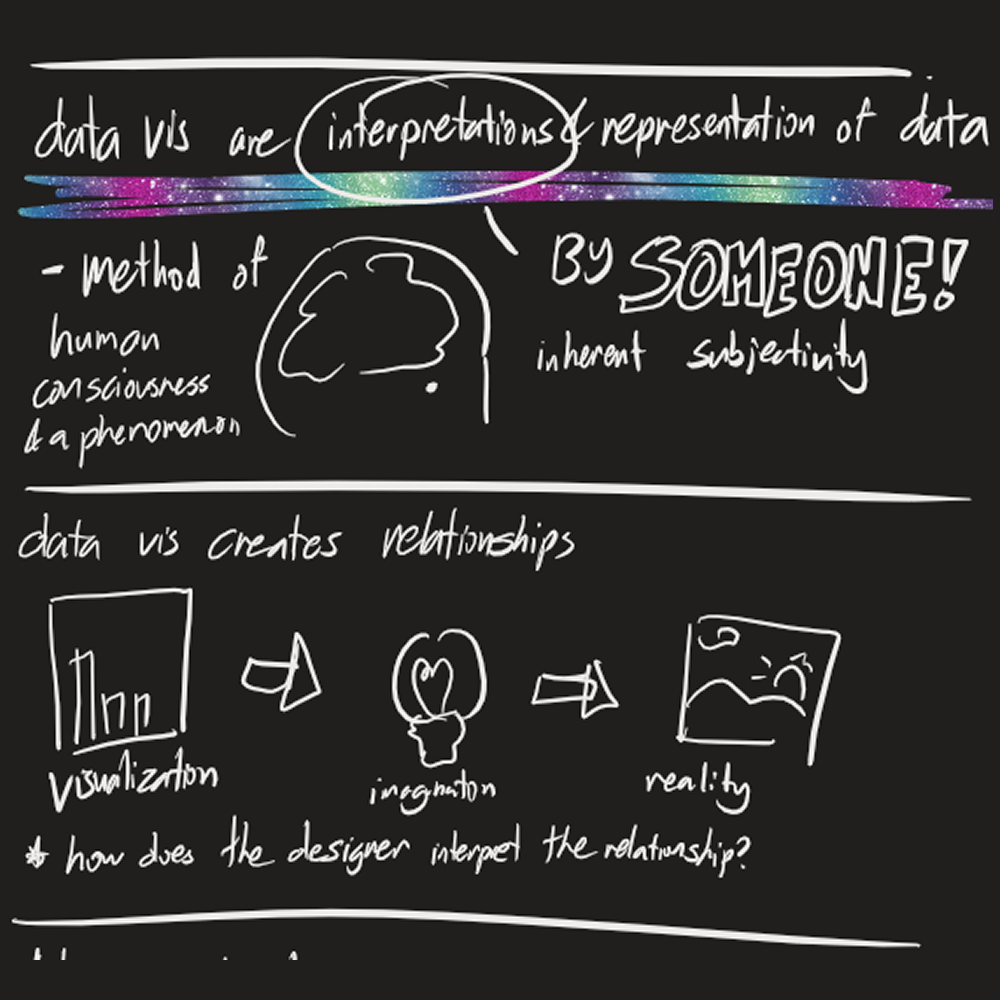 data vis are interpretations & representation of data
- method of
human
consciousness
& a phenomenon
By SOMEONE!
inherent subjectivity
data vis creates relationships
visualization
imagination
reality
* how does the designer interpret the relationship?